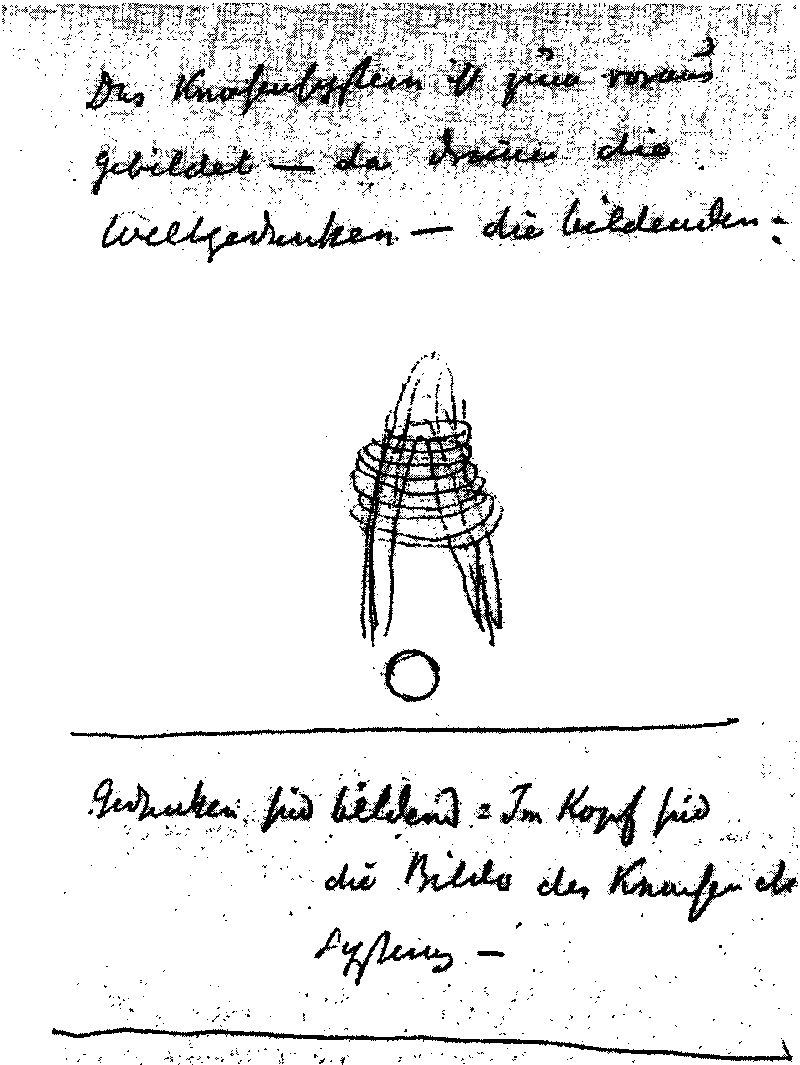 Das Knochensystem ist voraus
gebildet — da draussen die
Weltgedanken — die bildenden =
Gedanken sind bildend = Im Kopf sind
die Bilder des Knochen
Systems —